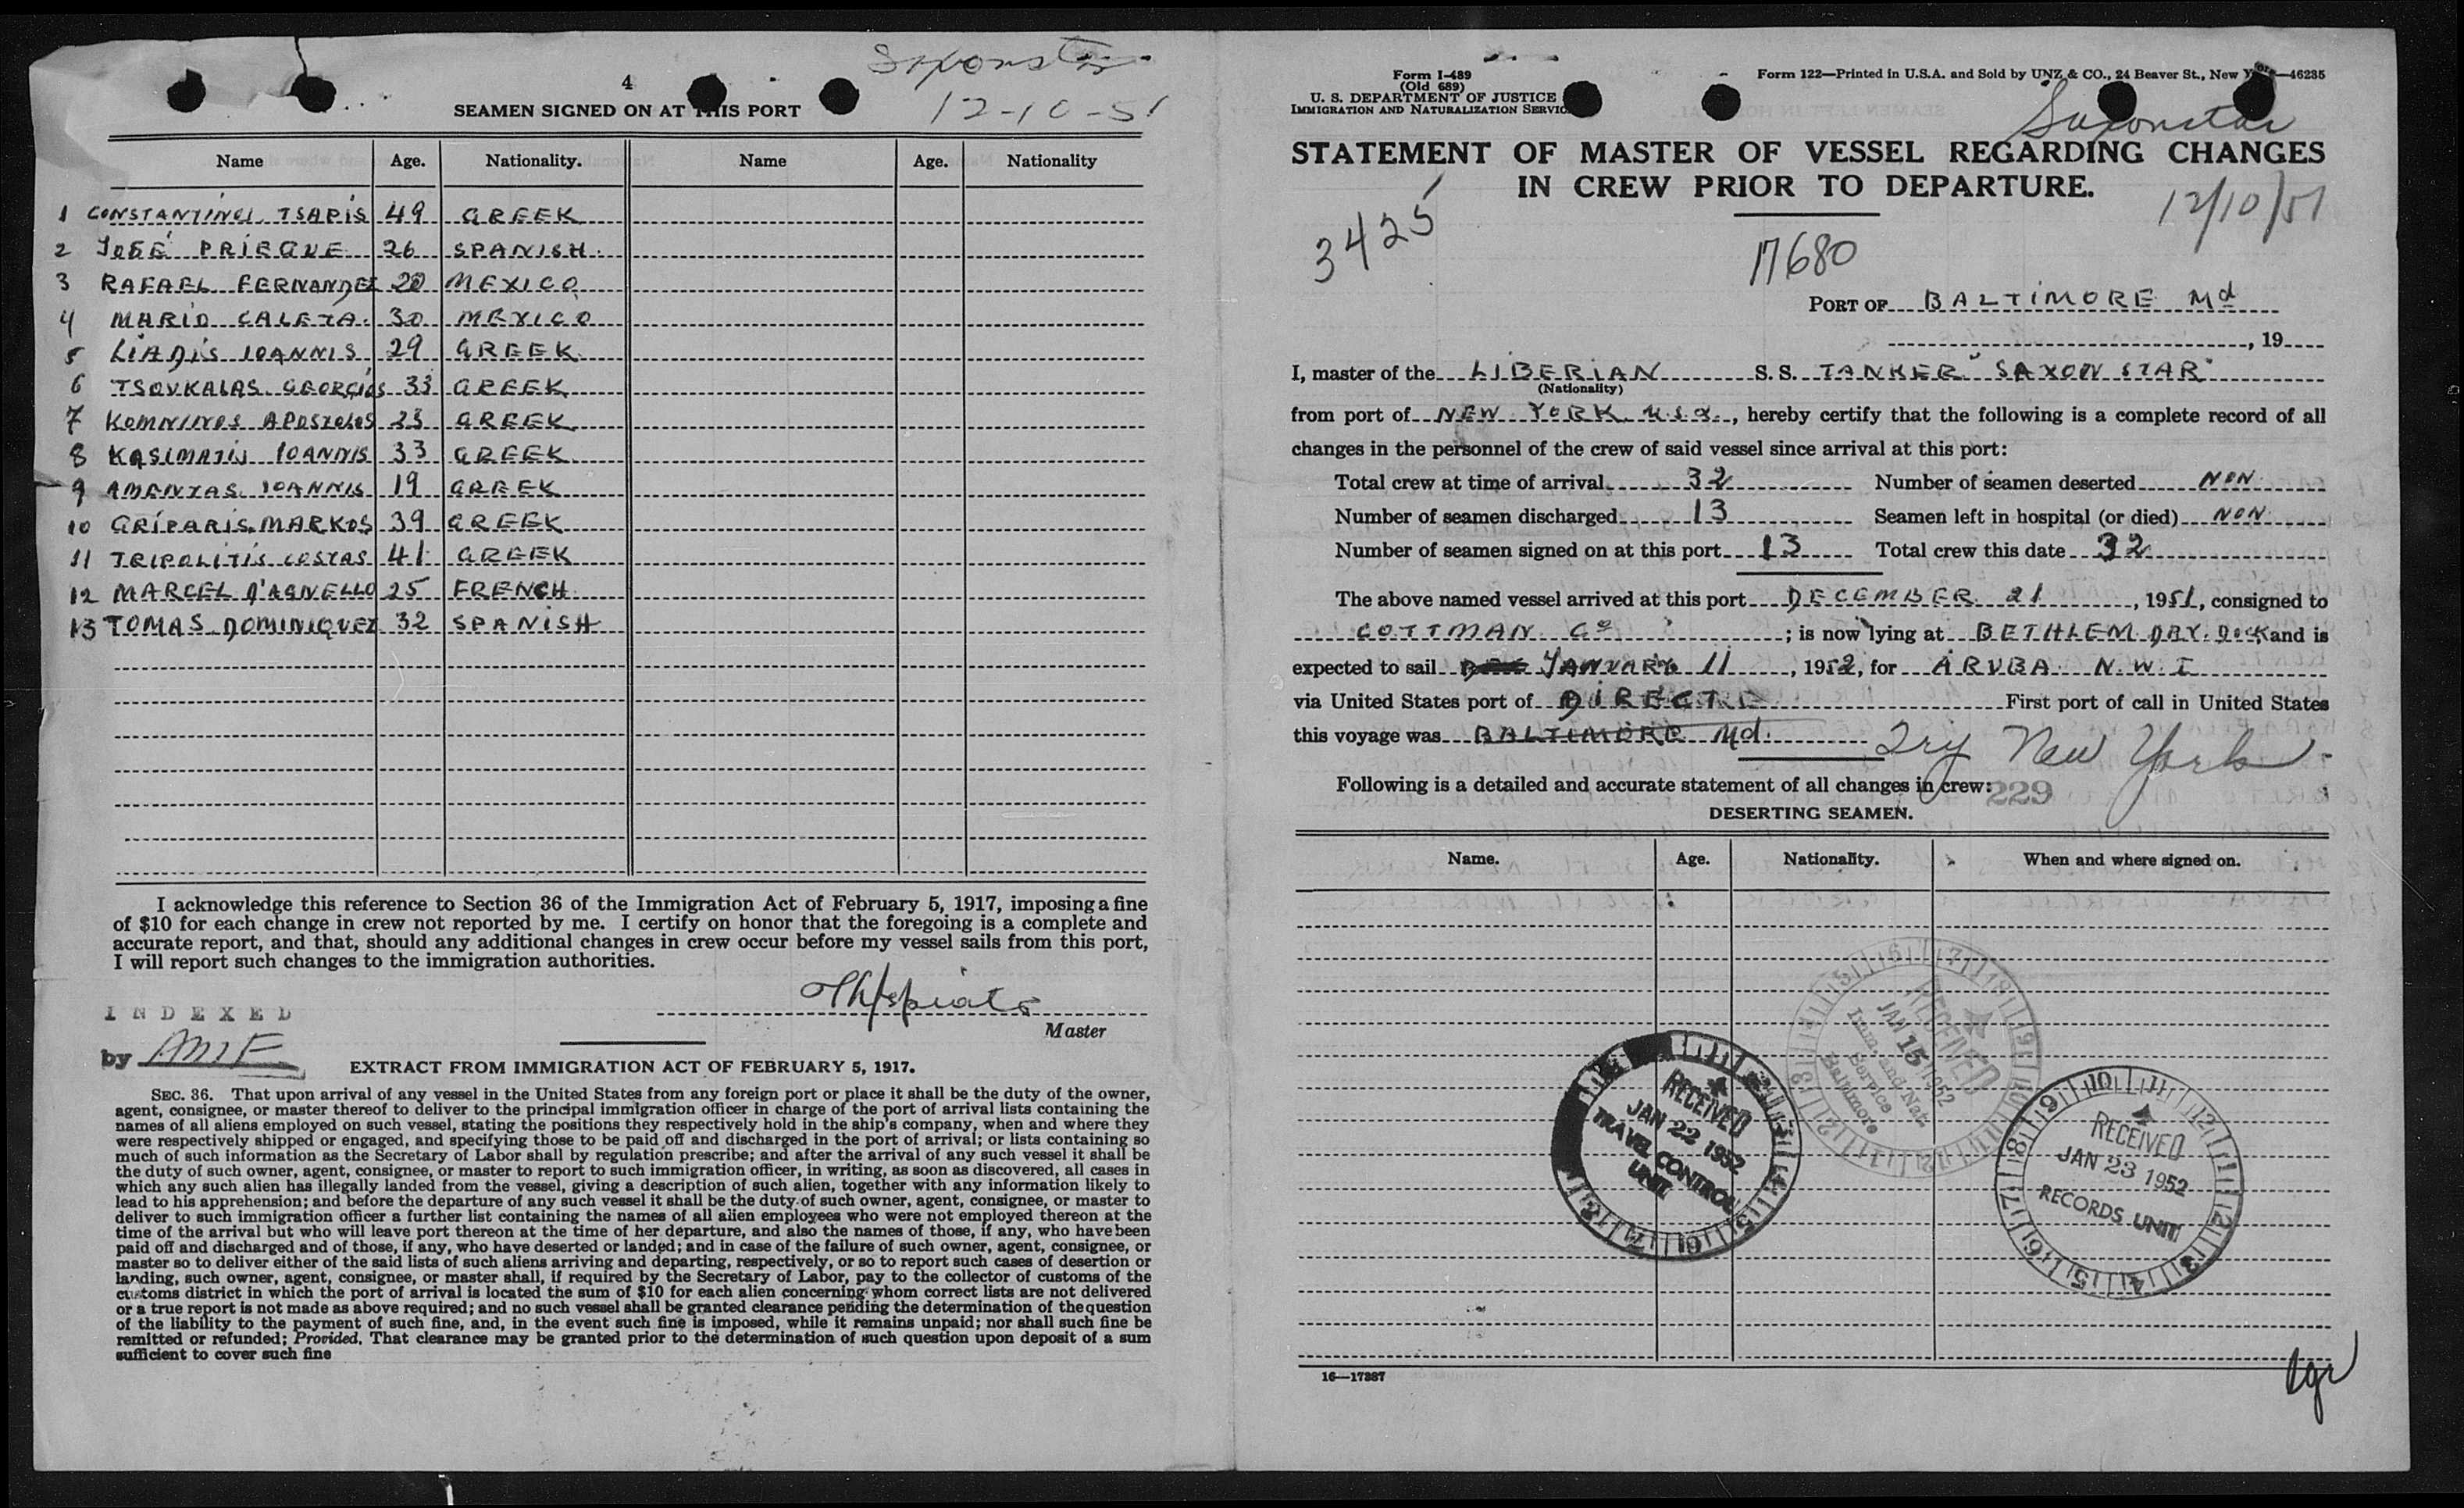 4
12-10-51
SEAMEN SIGNED ON AT THIS PORT
Name Age. Nationality. Name Age. Nationality
1 CONSTANTINOS TSAPIS 49 GREEK
2 JOSÉ PRIEGUE 26 SPANISH.
3 RAFAEL FERNANDEZ 20 MEXICO
4 MARIO 30 MEXICO
5 LIADIS IOANNIS 29 GREEK
6 TSOUKALAS GEORGIOS 33 GREEK
7 KOMNINOS APOSTOLOS 23 GREEK
8 KASIMATIS IOANNIS 33 GREEK
9 AMENTAS IOANNIS 19 GREEK
10 GRIPARIS MARKOS 39 GREEK
11 TRIPOLITIS COSTAS 41 GREEK
12 MARCEL D'AGNELLO 25 FRENCH
13 TOMAS DOMINIQUEZ 32 SPANISH
I acknowledge this reference to Section 36 of the Immigration Act of February 5, 1917, imposing a fine
of $10 for each change in crew not reported by me. I certify on honor that the foregoing is a complete and
accurate report, and that, should any additional changes in crew occur before my vessel sails from this port,
I will report such changes to the immigration authorities.
Master
INDEXED
by AMF
EXTRACT FROM IMMIGRATION ACT OF FEBRUARY 5, 1917.
SEC. 36. That upon arrival of any vessel in the United States from any foreign port or place it shall be the duty of the owner,
agent, consignee, or master thereof to deliver to the principal immigration officer in charge of the port of arrival lists containing the
names of all aliens employed on such vessel, stating the positions they respectively hold in the ship's company, when and where they
were respectively shipped or engaged, and specifying those to be paid off and discharged in the port of arrival; or lists containing so
much of such information as the Secretary of Labor shall by regulation prescribe; and after the arrival of any such vessel it shall be
the duty of such owner, agent, consignee, or master to report to such immigration officer, in writing, as soon as discovered, all cases in
which any such alien has illegally landed from the vessel, giving a description of such alien, together with any information likely to
lead to his apprehension; and before the departure of any such vessel it shall be the duty of such owner, agent, consignee, or master to
deliver to such immigration officer a further list containing the names of all alien employees who were not employed thereon at the
time of the arrival but who will leave port thereon at the time of her departure, and also the names of those, if any, who have been
paid off and discharged and of those, if any, who have deserted or landed; and in case of the failure of such owner, agent, consignee, or
master so to deliver either of the said lists of such aliens arriving and departing, respectively, or so to report such cases of desertion or
landing, such owner, agent, consignee, or master shall, if required by the Secretary of Labor, pay to the collector of customs of the
customs district in which the port of arrival is located the sum of $10 for each alien concerning whom correct lists are not delivered
or a true report is not made as above required; and no such vessel shall be granted clearance pending the determination of the question
of the liability to the payment of such fine, and, in the event such fine is imposed, while it remains unpaid; nor shall such fine be
remitted or refunded; Provided, That clearance may be granted prior to the determination of such question upon deposit of a sum
sufficient to cover such fine
Form I-489
(Old 689)
U. S. DEPARTMENT OF JUSTICE
IMMIGRATION AND NATURALIZATION SERVICE
Form 122—Printed in U.S.A. and Sold by UNZ & CO., 24 Beaver St., New York—46235
Saxonstar
STATEMENT OF MASTER OF VESSEL REGARDING CHANGES
IN CREW PRIOR TO DEPARTURE.
12/10/51
3425
17680
PORT OF BALTIMORE Md
, 19
I, master of the LIBERIAN S. S. TANKER "SAXON STAR"
(Nationality)
from port of NEW YORK U.S.A., hereby certify that the following is a complete record of all
changes in the personnel of the crew of said vessel since arrival at this port:
Total crew at time of arrival 32 Number of seamen deserted NON
Number of seamen discharged 13 Seamen left in hospital (or died) NON
Number of seamen signed on at this port 13 Total crew this date 32
The above named vessel arrived at this port DECEMBER 21, 1951, consigned to
COTTMAN Co; is now lying at BETHLEM DRY. DOCK and is
expected to sail JANUARY 11, 1952, for ARUBA N.W.I
via United States port of DIRECT First port of call in United States
this voyage was BALTIMORE Md. New York
Following is a detailed and accurate statement of all changes in crew:
229
DESERTING SEAMEN.
Name. Age. Nationality. When and where signed on.
RECEIVED
JAN 15 1952
Imm. and Nat.
Service
Baltimore
RECEIVED
JAN 22 1952
TRAVEL CONTROL
UNIT
RECEIVED
JAN 23 1952
RECORDS UNIT
16—17387